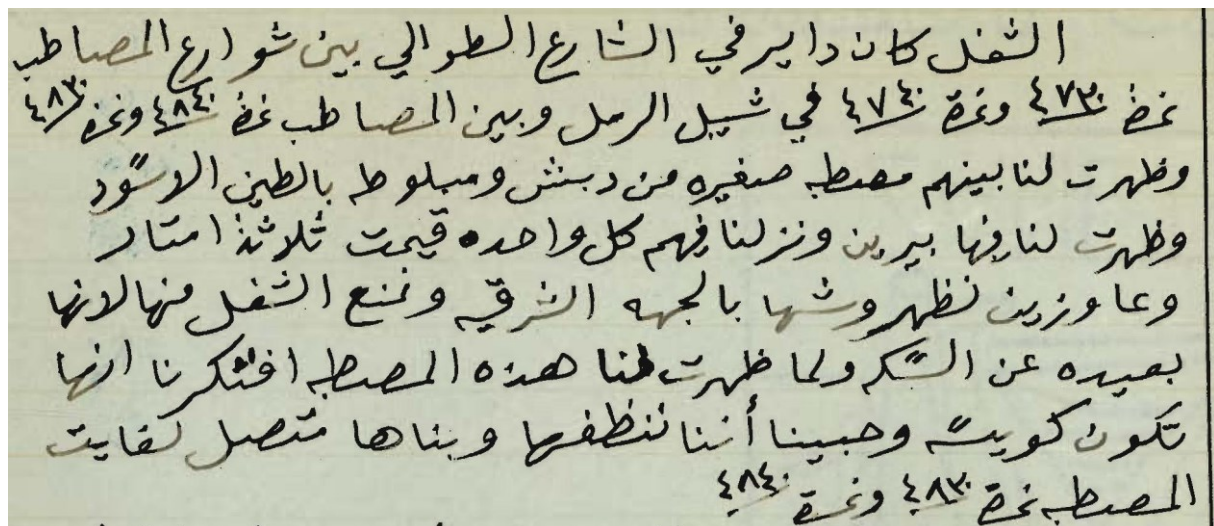 الشغل كان داير في الشارع الطوالي بين شوارع المصاطب
نمرة ٤٧٣٠ ونمرة ٤٧٤٠ في شيل الرمل وبين المصاطب نمرة ٤٨٤٠ ونمرة ٤٨٣٠
وظهرت لنا بينهم مصطبه صغيره من دبش ومبلوطه بالطين الاسود
وظهرت لنا فيها بيرين ونزلنا فيهم كل واحده قيمت ثلاثة امتار
وعاوزين نظهر وشها بالجهه الشرقيه ونمنع الشغل منها لانها
بعيده عن السكه ولما ظهرت لنا هذه المصطبه افتكرنا انها
تكون كويسه وحبينا أننا ننظفها وبناها متصل لغايت
المصطبه نمرة ٤٨٣٠ ونمرة ٤٨٤٠